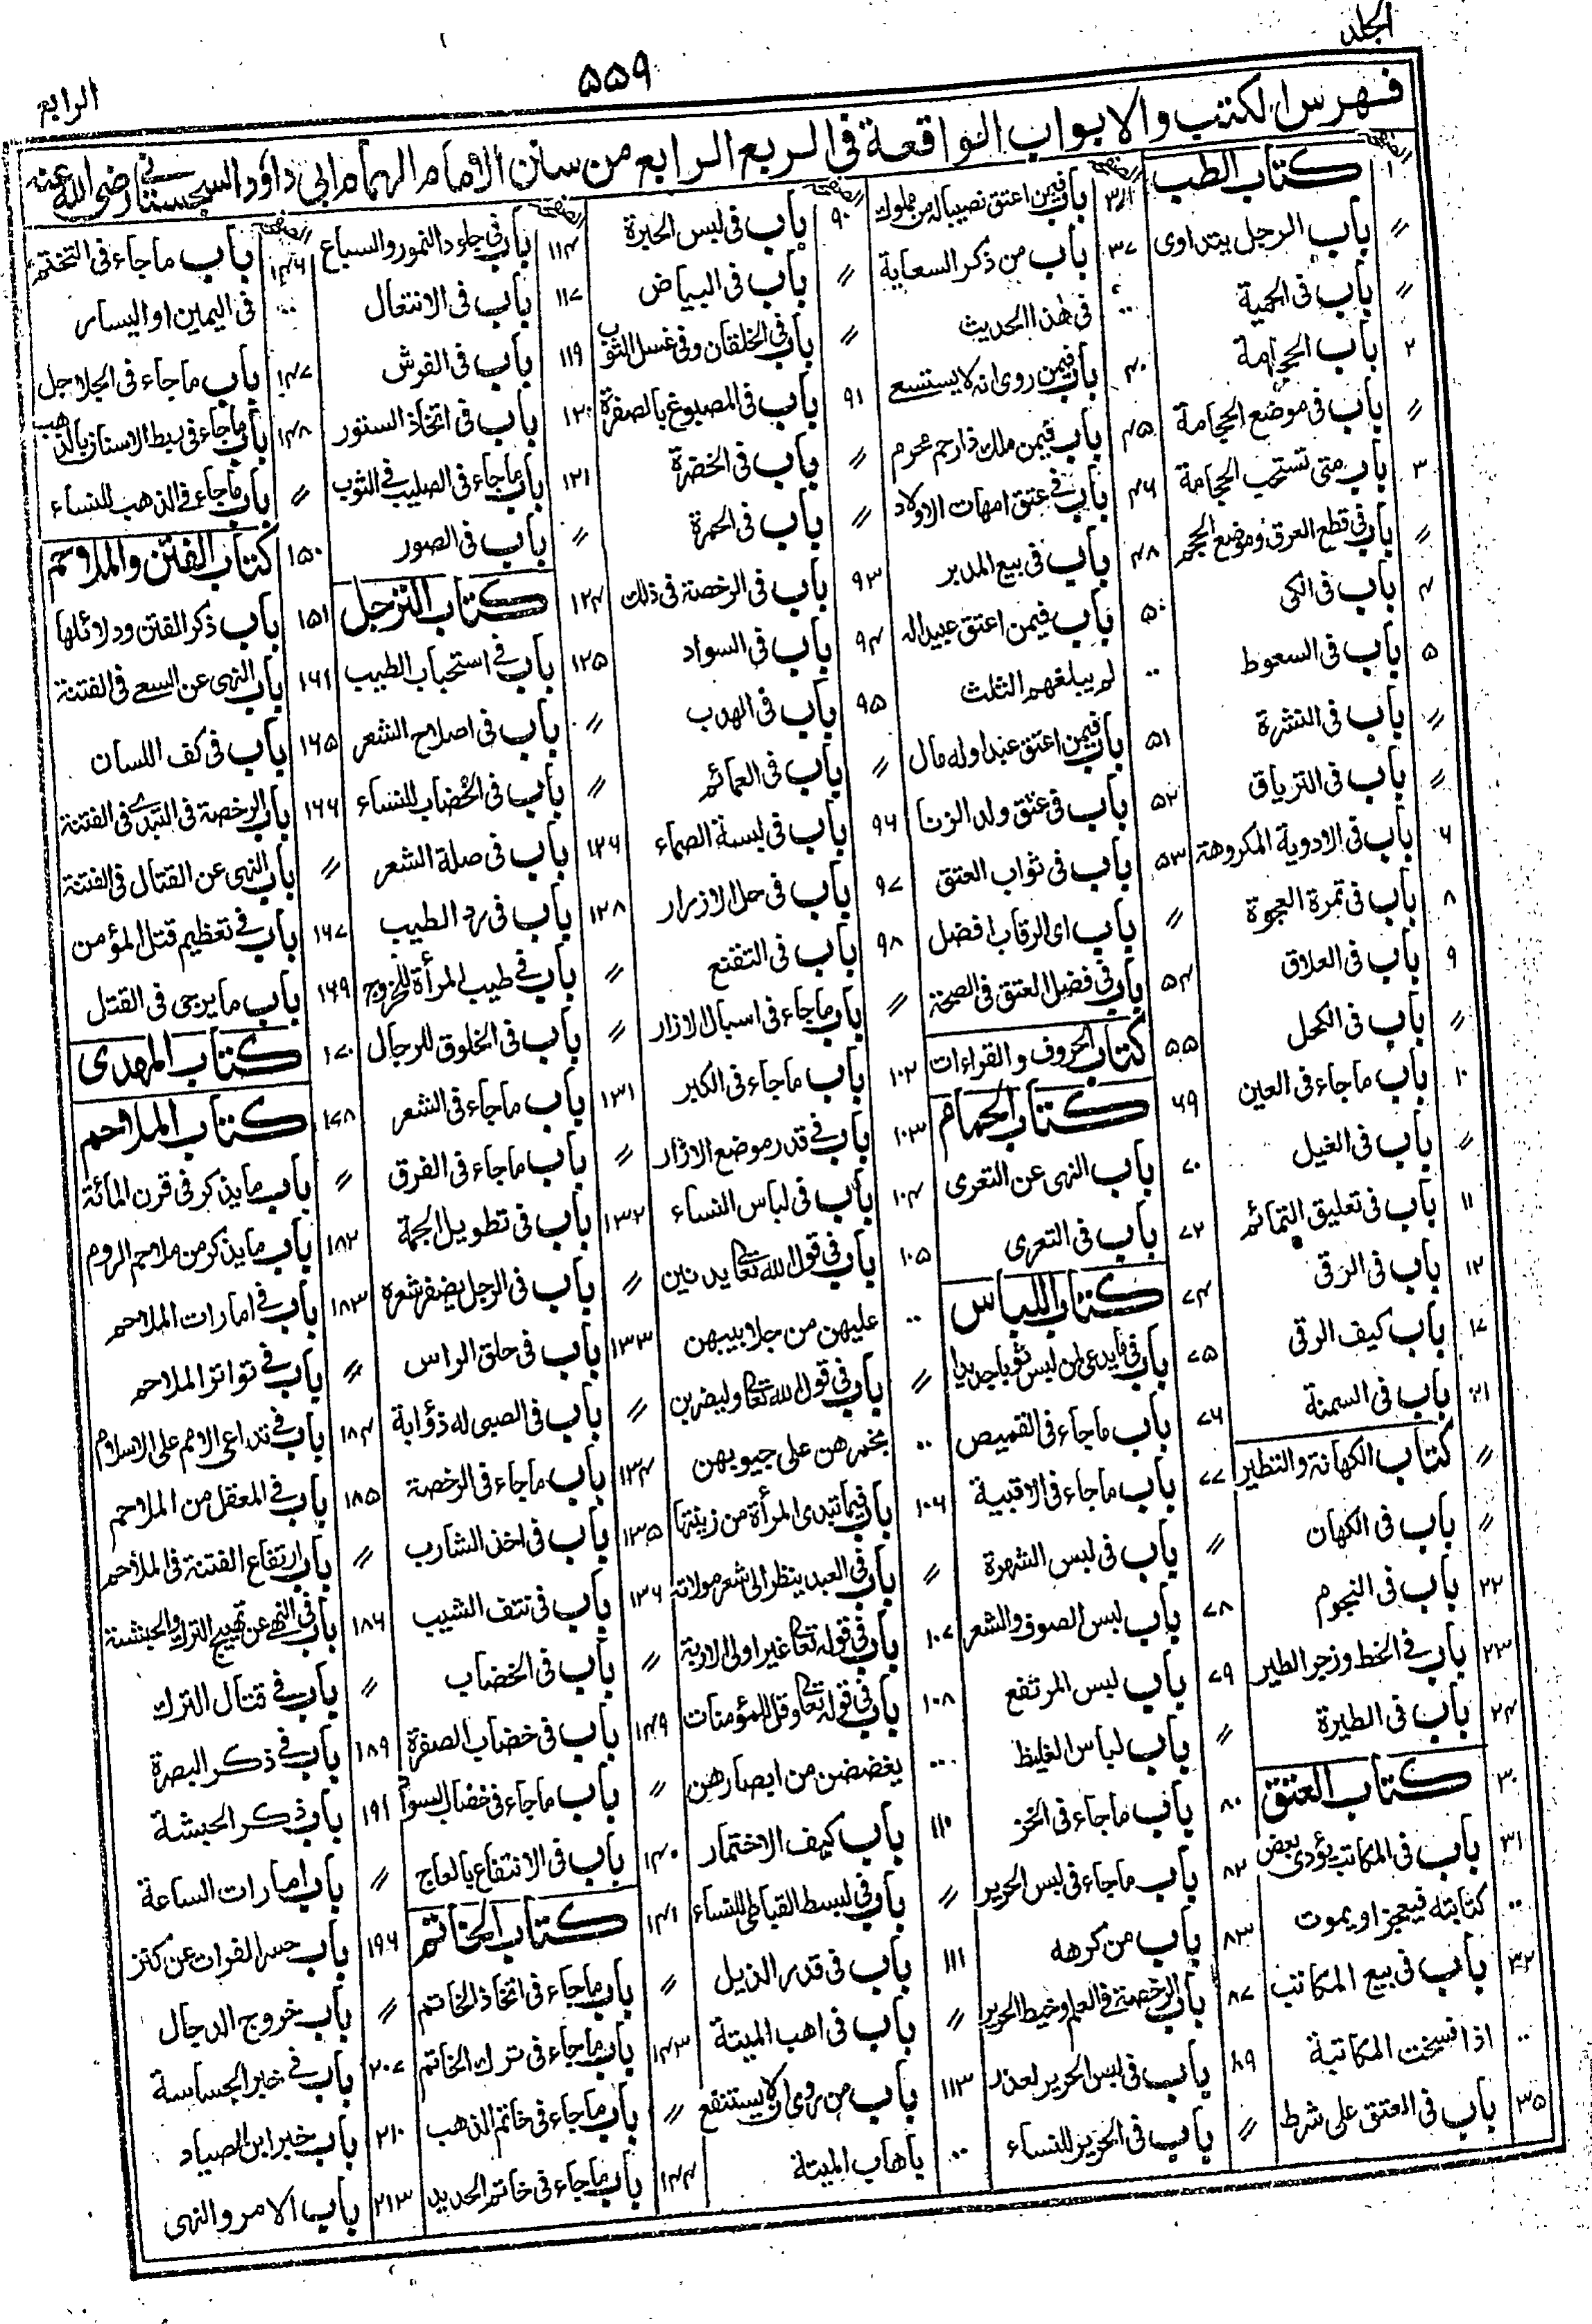 الجلد
۵۵۹
الرابع
فهرس الكتب والابواب الواقعة فى الربع الرابع من سنن الامام الهمام ابى داؤد السجستانى رضى الله عنه
الصفحة
۱ كتاب الطب
〃 باب الرجل يتداوى
〃 باب فى الحمية
۲ باب الحجامة
〃 باب فى موضع الحجامة
۳ باب متى تستحب الحجامة
〃 باب فى قطع العرق وموضع الحجم
۴ باب فى الكى
۵ باب فى السعوط
〃 باب فى النشرة
〃 باب فى الترياق
۶ باب فى الادوية المكروهة
۸ باب فى تمرة العجوة
۹ باب فى العلاق
〃 باب فى الكحل
۱۰ باب ماجاء فى العين
〃 باب فى الغيل
۱۱ باب فى تعليق التمائم
۱۲ باب فى الرقى
۱۷ باب كيف الرقى
۲۱ باب فى السمنة
〃 كتاب الكهانة والتطير
〃 باب فى الكهان
۲۲ باب فى النجوم
۲۳ باب فى الخط وزجر الطير
۲۴ باب فى الطيرة
۳۰ كتاب العتق
۳۱ باب فى المكاتب يؤدى بعض
.. كتابته فيعجز او يموت
۳۲ باب فى بيع المكاتب
.. اذا فسخت المكاتبة
۳۵ باب فى العتق على شرط
الصفحة
باب فيمن اعتق نصيبا له من مملوك
۳۷ باب من ذكر السعاية
.. فى هذا الحديث
۴۰ باب فيمن روى انه لا يستسع
۴۵ باب فيمن ملك ذا رحم محرم
۴۶ باب فى عتق امهات الاولاد
۴۸ باب فى بيع المدبر
۵۰ باب فيمن اعتق عبيدا له
.. لم يبلغهم الثلث
۵۱ باب فيمن اعتق عبدا وله مال
۵۲ باب فى عتق ولد الزنا
۵۳ باب فى ثواب العتق
〃 باب اى الرقاب افضل
۵۴ باب فى فضل العتق فى الصحة
۵۵ كتاب الحروف والقراءات
۶۹ كتاب الحمام
۷۰ باب النهى عن التعرى
۷۲ باب فى التعرى
۷۴ كتاب اللباس
۷۵ باب فى ما يدعى لمن لبس ثوبا جديدا
۷۶ باب ماجاء فى القميص
۷۷ باب ماجاء فى الاقبية
〃 باب فى لبس الشهرة
۷۸ باب لبس الصوف والشعر
۷۹ باب لبس المرتفع
〃 باب لباس الغليظ
۸۰ باب ماجاء فى الخز
۸۲ باب ماجاء فى لبس الحرير
۸۳ باب من كرهه
۸۷ باب الرخصة فى العلم وخيط الحرير
۸۹ باب فى لبس الحرير لعذر
〃 باب فى الحرير للنساء
الصفحة
۹۰ باب فى لبس الحبرة
〃 باب فى البياض
〃 باب فى الخلقان وفى غسل الثوب
۹۱ باب فى المصبوغ بالصفرة
〃 باب فى الخضرة
〃 باب فى الحمرة
۹۳ باب فى الرخصة فى ذلك
۹۴ باب فى السواد
۹۵ باب فى الهدب
〃 باب فى العمائم
۹۶ باب فى لبسة الصماء
۹۷ باب فى حل الازرار
۹۸ باب فى التقنع
〃 باب ماجاء فى اسبال الازار
۱۰۲ باب ماجاء فى الكبر
۱۰۳ باب فى قدر موضع الازار
۱۰۴ باب فى لباس النساء
۱۰۵ باب فى قول الله تعالى يدنين
.. عليهن من جلابيبهن
〃 باب فى قول الله تعالى وليضربن
.. بخمرهن على جيوبهن
۱۰۶ باب فيما تبدى المرأة من زينتها
〃 باب فى العبد ينظر الى شعر مولاته
۱۰۷ باب فى قوله تعالى غير اولى الاربة
۱۰۸ باب فى قوله تعالى وقل للمؤمنات
... يغضضن من ابصارهن
۱۱۰ باب كيف الاختمار
〃 باب فى لبسط القباطى للنساء
۱۱۱ باب فى قدر الذيل
〃 باب فى اهب الميتة
۱۱۳ باب من روى ان لا يستنفع
.. باهاب الميتة
الصفحة
۱۱۴ باب فى جلود النمور والسباع
۱۱۷ باب فى الانتعال
۱۱۹ باب فى الفرش
۱۲۰ باب فى اتخاذ الستور
۱۲۱ باب ماجاء فى الصليب فى الثوب
〃 باب فى الصور
۱۲۴ كتاب الترجل
۱۲۵ باب فى استحباب الطيب
〃 باب فى اصلاح الشعر
〃 باب فى الخضاب للنساء
۱۲۶ باب فى صلة الشعر
۱۲۸ باب فى رد الطيب
〃 باب فى طيب المرأة للخروج
〃 باب فى الخلوق للرجال
۱۳۱ باب ماجاء فى الشعر
〃 باب ماجاء فى الفرق
۱۳۲ باب فى تطويل الجمة
〃 باب فى الرجل يضفر شعره
۱۳۳ باب فى حلق الراس
〃 باب فى الصبى له ذؤابة
۱۳۴ باب ماجاء فى الرخصة
۱۳۵ باب فى اخذ الشارب
۱۳۶ باب فى نتف الشيب
〃 باب فى الخضاب
۱۳۹ باب فى خضاب الصفرة
〃 باب ماجاء فى خضاب السواد
۱۴۰ باب فى الانتفاع بالعاج
۱۴۱ كتاب الخاتم
〃 باب ماجاء فى اتخاذ الخاتم
۱۴۳ باب ماجاء فى ترك الخاتم
〃 باب ماجاء فى خاتم الذهب
۱۴۴ باب ماجاء فى خاتم الحديد
الصفحة
۱۴۶ باب ماجاء فى التختم
.. فى اليمين او اليسار
۱۴۷ باب ماجاء فى الجلاجل
۱۴۸ باب ماجاء فى ربط الاسنان بالذهب
〃 باب ماجاء فى الذهب للنساء
۱۵۰ كتاب الفتن والملاحم
۱۵۱ باب ذكر الفتن ودلائلها
۱۶۱ باب النهى عن السعى فى الفتنة
۱۶۵ باب فى كف اللسان
۱۶۶ باب الرخصة فى التبدى فى الفتنة
〃 باب النهى عن القتال فى الفتنة
۱۶۷ باب فى تعظيم قتل المؤمن
۱۶۹ باب ما يرجى فى القتل
۱۷۰ كتاب المهدى
۱۷۸ كتاب الملاحم
〃 باب ما يذكر فى قرن المائة
۱۸۲ باب ما يذكر من ملاحم الروم
۱۸۳ باب فى امارات الملاحم
〃 باب فى تواتر الملاحم
۱۸۴ باب فى تداعى الامم على الاسلام
۱۸۵ باب فى المعقل من الملاحم
〃 باب ارتفاع الفتنة فى الملاحم
۱۸۶ باب فى النهى عن تهييج الترك والحبشة
〃 باب فى قتال الترك
۱۸۹ باب فى ذكر البصرة
۱۹۱ باب ذكر الحبشة
〃 باب امارات الساعة
۱۹۶ باب حسر الفرات عن كنز
〃 باب خروج الدجال
۲۰۷ باب فى خبر الجساسة
۲۱۰ باب خبر ابن الصياد
۲۱۳ باب الامر والنهى